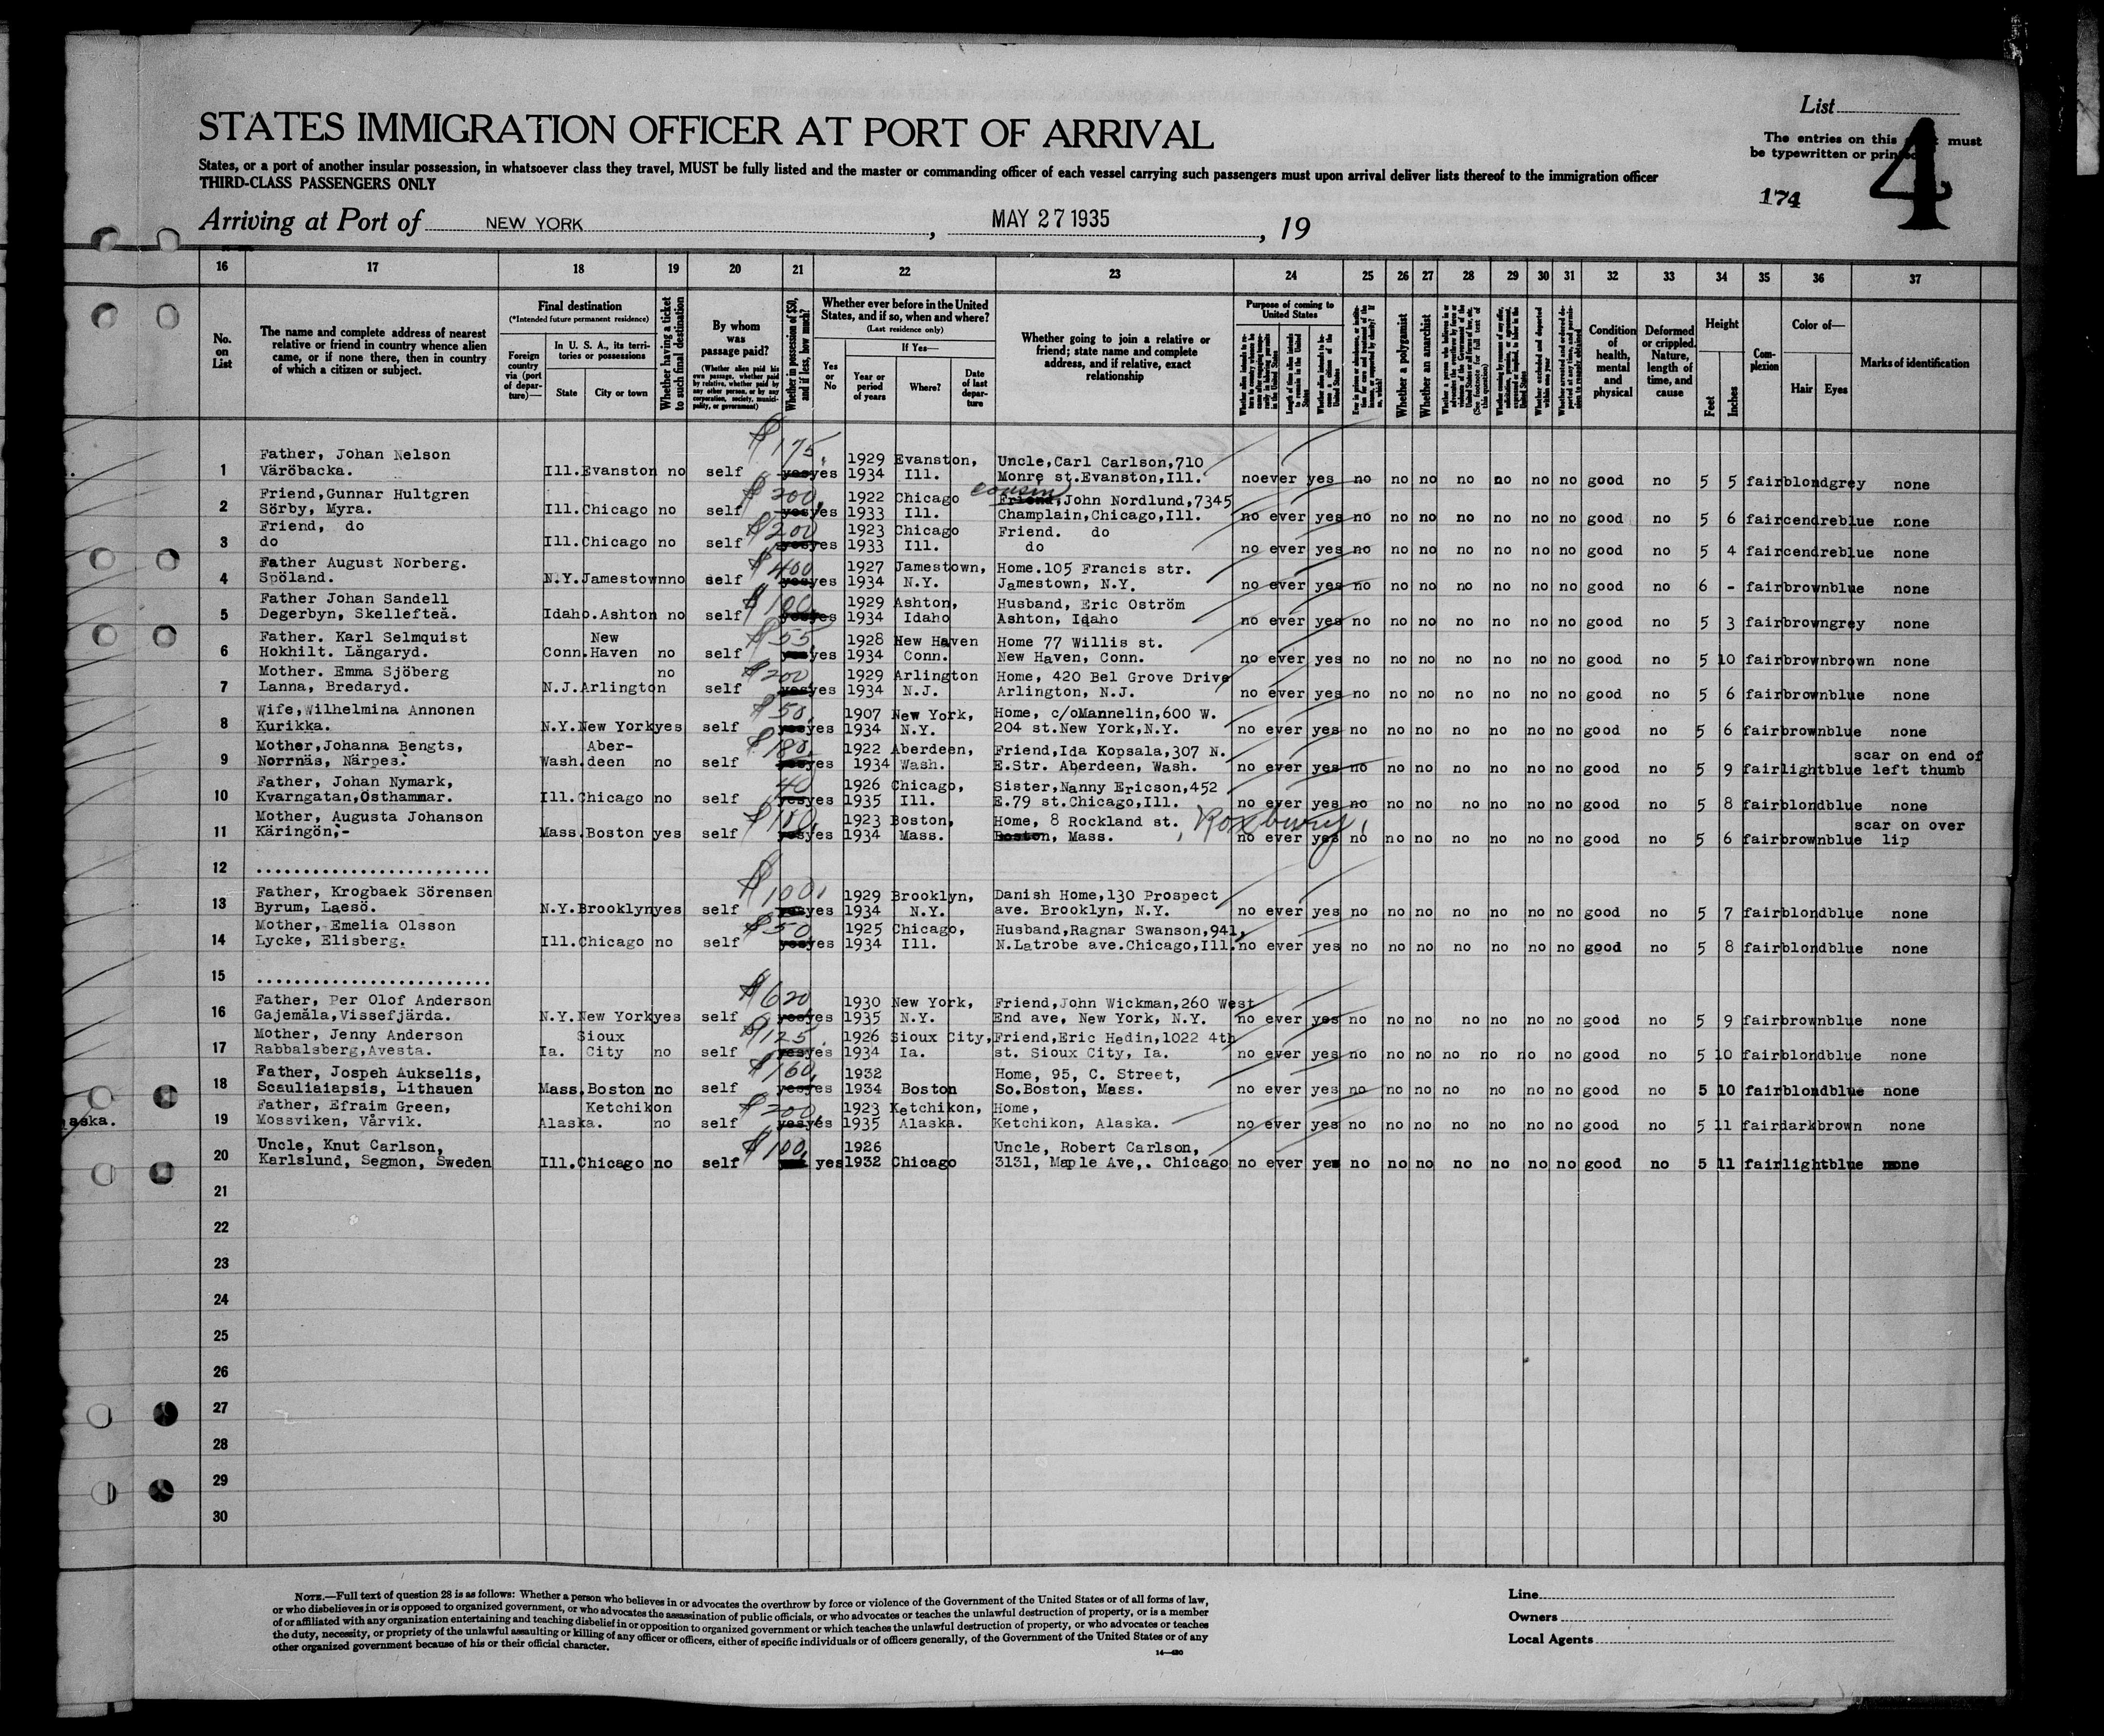 List
STATES IMMIGRATION OFFICER AT PORT OF ARRIVAL
The entries on this must
be typewritten or printed
4
174
States, or a port of another insular possession, in whatsoever class they travel, MUST be fully listed and the master or commanding officer of each vessel carrying such passengers must upon arrival deliver lists thereof to the immigration officer
THIRD-CLASS PASSENGERS ONLY
Arriving at Port of NEW YORK, MAY 27 1935, 19
16 17 18 19 20 21 22 23 24 25 26 27 28 29 30 31 32 33 34 35 36 37
No. on List
The name and complete address of nearest relative or friend in country whence alien came, or if none there, then in country of which a citizen or subject.
Final destination
(*Intended future permanent residence)
Foreign country via (port of departure)—
In U. S. A., its territories or possessions
State
City or town
Whether having a ticket to such final destination
By whom was passage paid?
(Whether alien paid his own passage, whether paid by relative, whether paid by any other person, or by any corporation, society, municipality, or government)
Whether in possession of $50, and if less, how much?
Whether ever before in the United States, and if so, when and where?
(Last residence only)
Yes or No
If Yes—
Year or period of years
Where?
Date of last departure
Whether going to join a relative or friend; state name and complete address, and if relative, exact relationship
Purpose of coming to United States
Whether a polygamist
Whether an anarchist
Condition of health, mental and physical
Deformed or crippled. Nature, length of time, and cause
Height
Feet
Inches
Complexion
Color of—
Hair
Eyes
Marks of identification
$175.
Father, Johan Nelson 1929 Evanston, Uncle,Carl Carlson,710
1 Väröbacka. Ill. Evanston no self yes yes 1934 Ill. Monre st.Evanston,Ill. noever yes no no no no no no no good no 5 5 fair blond grey none
Friend,Gunnar Hultgren $200. 1922 Chicago cousin Friend,John Nordlund,7345
2 Sörby, Myra. Ill. Chicago no self yes yes 1933 Ill. Champlain,Chicago,Ill. no ever yes no no no no no no no good no 5 6 fair cendre blue none
Friend, do $200 1923 Chicago Friend. do
3 do Ill. Chicago no self yes yes 1933 Ill. do no ever yes no no no no no no no good no 5 4 fair cendre blue none
Father August Norberg. $400 1927 Jamestown, Home.105 Francis str.
4 Spöland. N.Y. Jamestown no self yes yes 1934 N.Y. Jamestown, N.Y. no ever yes no no no no no no no good no 6 - fair brown blue none
Father Johan Sandell $100 1929 Ashton, Husband, Eric Oström
5 Degerbyn, Skellefteå. Idaho. Ashton no self yes yes 1934 Idaho Ashton, Idaho no ever yes no no no no no no no good no 5 3 fair brown grey none
Father. Karl Selmquist New $55 1928 New Haven Home 77 Willis st.
6 Hokhilt. Långaryd. Conn. Haven no self yes yes 1934 Conn. New Haven, Conn. no ever yes no no no no no no no good no 5 10 fair brown brown none
Mother. Emma Sjöberg no $200 1929 Arlington Home, 420 Bel Grove Drive
7 Lanna, Bredaryd. N.J. Arlington self yes yes 1934 N.J. Arlington, N.J. no ever yes no no no no no no no good no 5 6 fair brown blue none
Wife,Wilhelmina Annonen $50. 1907 New York, Home, c/oMannelin,600 W.
8 Kurikka. N.Y. New York yes self yes yes 1934 N.Y. 204 st.New York,N.Y. no ever yes no no no no no no no good no 5 6 fair brown blue none
Mother,Johanna Bengts, Aber- $180. 1922 Aberdeen, Friend,Ida Kopsala,307 N. scar on end of
9 Norrnäs, Närpes. Wash. deen no self yes yes 1934 Wash. E.Str. Aberdeen, Wash. no ever yes no no no no no no no good no 5 9 fair light blue left thumb
Father, Johan Nymark, 40 1926 Chicago, Sister,Nanny Ericson,452
10 Kvarngatan,Östhammar. Ill. Chicago no self yes yes 1935 Ill. E.79 st.Chicago,Ill. no ever yes no no no no no no no good no 5 8 fair blond blue none
Mother, Augusta Johanson $100. 1923 Boston, Home, 8 Rockland st. Roxbury, scar on over
11 Käringön,- Mass. Boston yes self yes yes 1934 Mass. Boston, Mass. no ever yes no no no no no no no good no 5 6 fair brown blue lip
12 ........................
Father, Krogbaek Sörensen $100. 1929 Brooklyn, Danish Home,130 Prospect
13 Byrum, Laesö. N.Y. Brooklyn yes self yes yes 1934 N.Y. ave. Brooklyn, N.Y. no ever yes no no no no no no no good no 5 7 fair blond blue none
Mother, Emelia Olsson $50 1925 Chicago, Husband,Ragnar Swanson,941,
14 Lycke, Elisberg. Ill. Chicago no self yes yes 1934 Ill. N.Latrobe ave.Chicago,Ill. no ever yes no no no no no no no good no 5 8 fair blond blue none
15 ........................
Father, Per Olof Anderson $620 1930 New York, Friend,John Wickman,260 West
16 Gajemåla,Vissefjärda. N.Y. New York yes self yes yes 1935 N.Y. End ave, New York, N.Y. no ever yes no no no no no no no good no 5 9 fair brown blue none
Mother, Jenny Anderson Sioux $125. 1926 Sioux City, Friend,Eric Hedin,1022 4th
17 Rabbalsberg,Avesta. Ia. City no self yes yes 1934 Ia. st. Sioux City, Ia. no ever yes no no no no no no no good no 5 10 fair blond blue none
Father, Jospeh Aukselis, $160. 1932 Home, 95, C. Street,
18 Scauliaiapsis, Lithauen Mass. Boston no self yes yes 1934 Boston So.Boston, Mass. no ever yes no no no no no no no good no 5 10 fair blond blue none
Father, Efraim Green, Ketchikon $200. 1923 Ketchikon, Home,
aska. 19 Mossviken, Vårvik. Alaska. no self yes yes 1935 Alaska. Ketchikon, Alaska. no ever yes no no no no no no no good no 5 11 fair dark brown none
Uncle, Knut Carlson, $100. 1926 Uncle, Robert Carlson,
20 Karlslund, Segmon, Sweden Ill. Chicago no self yes 1932 Chicago 3131, Maple Ave,. Chicago no ever yes no no no no no no no good no 5 11 fair light blue none
21
22
23
24
25
26
27
28
29
30
NOTE.—Full text of question 28 is as follows: Whether a person who believes in or advocates the overthrow by force or violence of the Government of the United States or of all forms of law,
or who disbelieves in or is opposed to organized government, or who advocates the assassination of public officials, or who advocates or teaches the unlawful destruction of property, or is a member
of or affiliated with any organization entertaining and teaching disbelief in or opposition to organized government or which teaches the unlawful destruction of property, or who advocates or teaches
the duty, necessity, or propriety of the unlawful assaulting or killing of any officer or officers, either of specific individuals or of officers generally, of the Government of the United States or of any
other organized government because of his or their official character.
14—430
Line
Owners
Local Agents